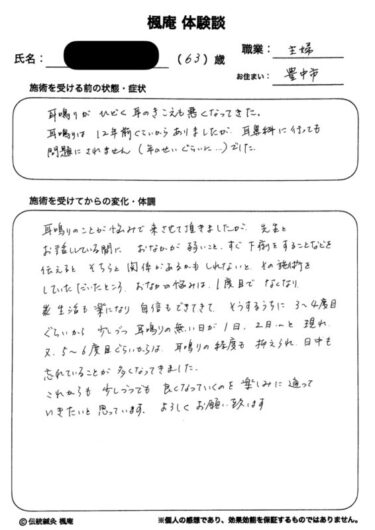 楓庵 体験談
氏名： （63）歳
職業： 主婦
お住まい： 豊中市
施術を受ける前の状態・症状
耳鳴りが ひどく 耳のきこえも悪くなってきた。
耳鳴りは 12年前ぐらいから ありましたが 耳鼻科に行っても
問題にされません（年のせいぐらいに…）でした。
施術を受けてからの変化・体調
耳鳴りのことが悩みで 来させて頂きましたが、先生と
お話している間に、おなかが弱いこと、すぐ下痢をすることなどを
伝えると そちらと関係があるかもしれないと、その施術を
していただいたところ、おなかの悩みは、1度目で なくなり
生活も楽になり 自信もできてきて、そうするうちに 3〜4度目
ぐらいから 少しづつ 耳鳴りの無い日が 1日、2日…と 現れ
又、5〜6度目ぐらいからは、耳鳴りの程度も 抑えられ 日中も
忘れていることが 多くなってきました。
これからも 少しづつでも 良くなっていくのを 楽しみに 通って
いきたいと思っています。よろしく お願い致します
© 伝統鍼灸 楓庵
※個人の感想であり、効果効能を保証するものではありません。